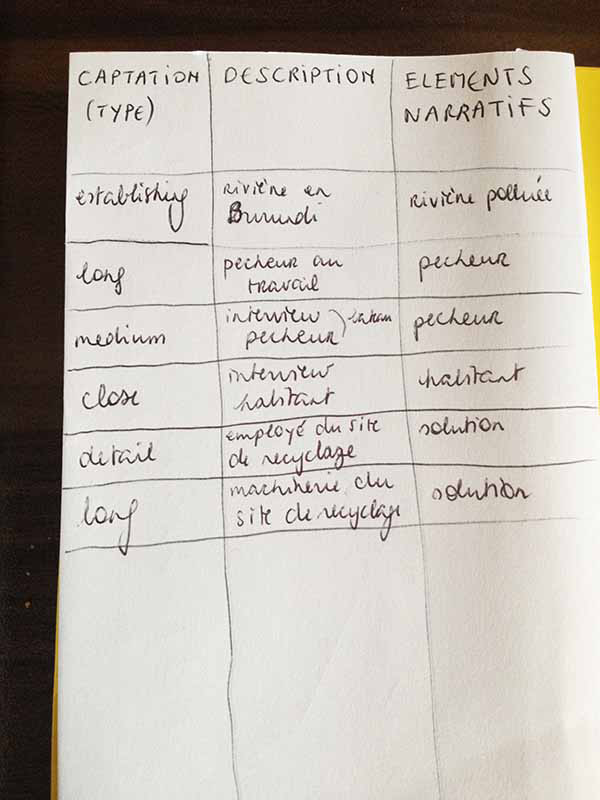 CAPTATION (TYPE) DESCRIPTION ELEMENTS NARRATIFS
establishing rivière en Burundi rivière polluée
long pecheur au travail pecheur
medium interview pecheur bateau pecheur
close interview habitant habitant
detail employé du site de recyclage solution
long machinerie du site de recyclage solution